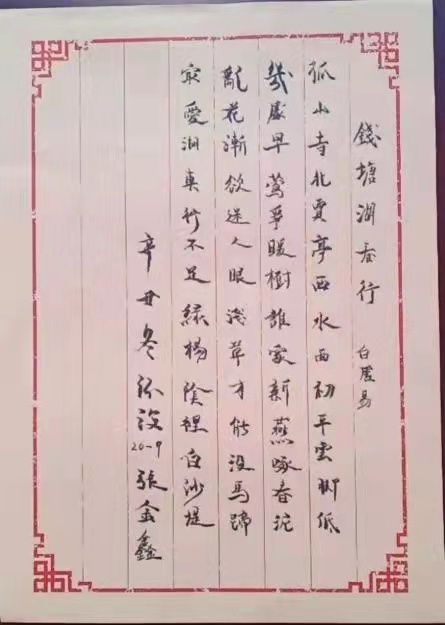 錢塘湖春行 白居易
孤山寺北賈亭西水面初平雲脚低
幾處早鶯爭暖樹誰家新燕啄春泥
亂花漸欲迷人眼淺草才能沒馬蹄
最愛湖東行不足綠楊陰裡白沙堤
辛丑冬 20-9 張金鑫